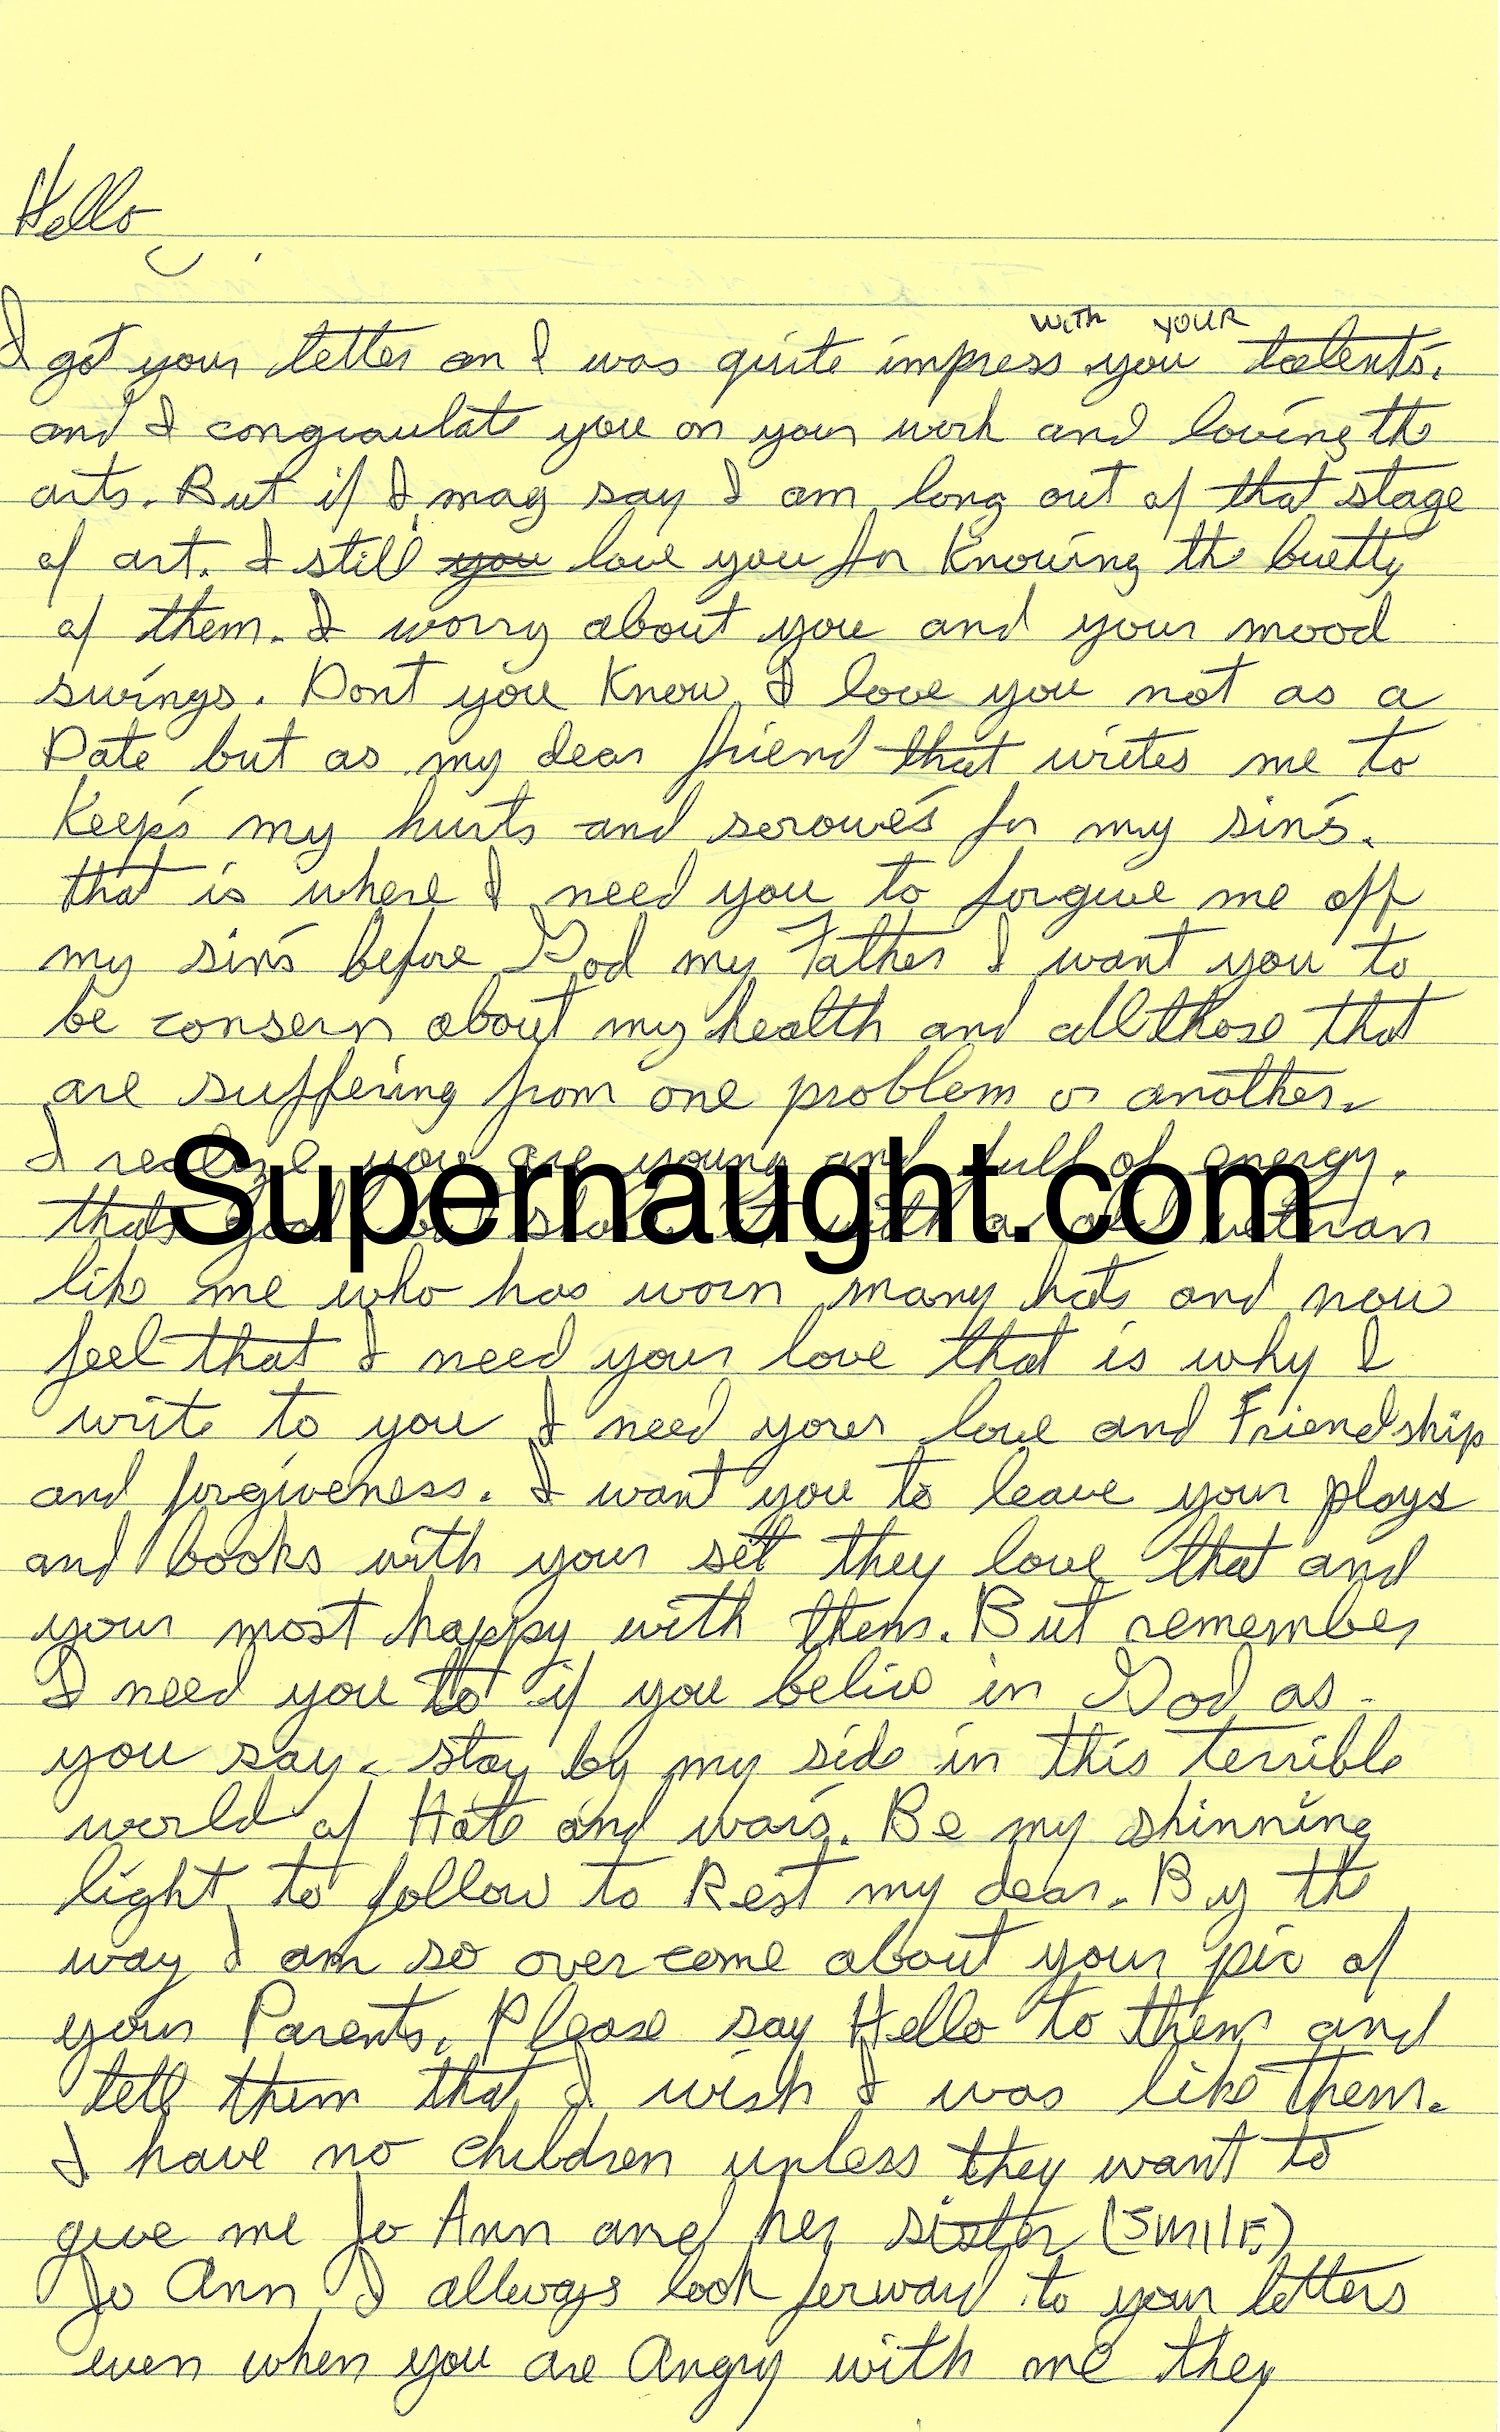 Hello
with your
I got your letter an I was quite impress you talents.
and I congraulate you on your work and loving the
arts. But if I may say I am long out of that stage
of art. I still you love you for Knowing the buetty
of them. I worry about you and your mood
swings. Dont you Know I love you not as a
Date but as my dear friend that writes me to
Keep's my hurts and serowe's for my sin's.
that is where I need you to forgive me off
my sin's before God my Father I want you to
be consern about my health and all those that
are suffering from one problem or another.
I realize you are young and full of energy.
Supernaught.com
that's with a old veteran
like me who has worn many hats and now
feel that I need your love that is why I
write to you I need your love and Friendship
and forgiveness. I want you to leave your plays
and books with your set they love that and
your most happy with them. But remember
I need you to if you belive in God as
you say. stay by my side in this terrible
world of Hate and wars. Be my shinning
light to follow to Rest my dear. By the
way I am so over come about your pic of
your Parents. Please say Hello to them and
tell them that I wish I was like them.
I have no children unless they want to
give me Jo Ann and her sister (SMILE)
Jo Ann I allways look forward to your letters
even when you are Angry with me they